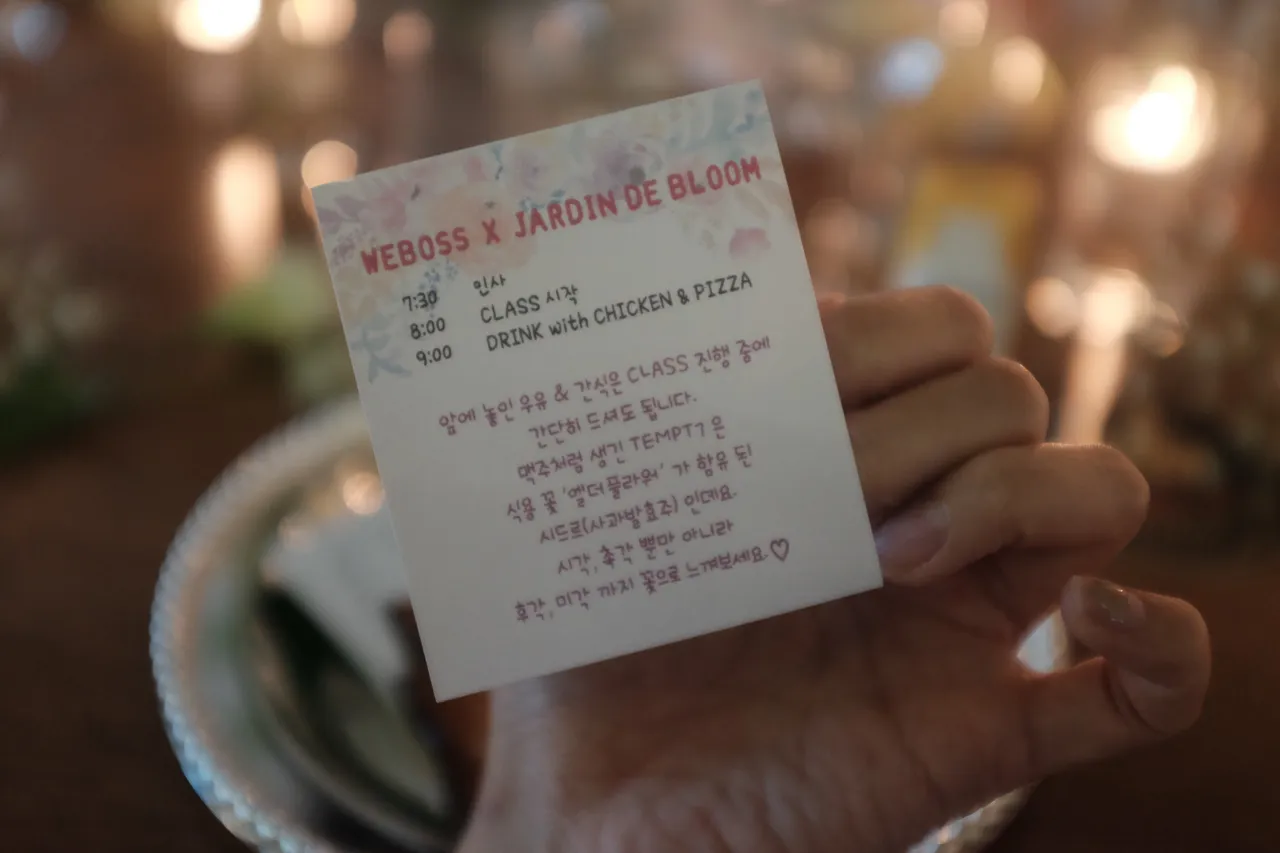 WEBOSS X JARDIN DE BLOOM
7:30 인사
8:00 CLASS 시작
9:00 DRINK with CHICKEN & PIZZA
앞에 놓인 우유 & 간식은 CLASS 진행 중에
간단히 드셔도 됩니다.
맥주처럼 생긴 TEMPT7 은
식용 꽃 '엘더플라워' 가 함유 된
시드르(사과발효주) 인데요.
시각, 촉각 뿐만 아니라
후각, 미각 까지 꽃으로 느껴보세요.♡